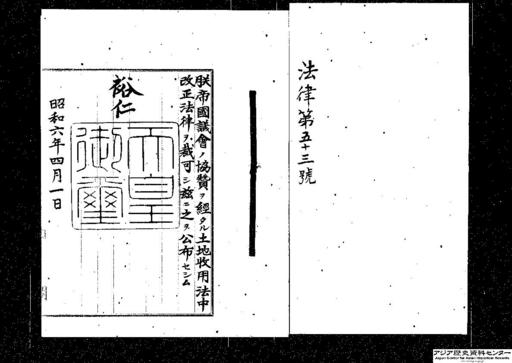 法律第五十三號
朕帝國議會ノ協贊ヲ經タル土地收用法中
改正法律ヲ裁可シ茲ニ之ヲ公布セシム
裕仁
天皇
御璽
昭和六年四月一日
アジア歴史資料センター
Japan Center for Asian Historical Records